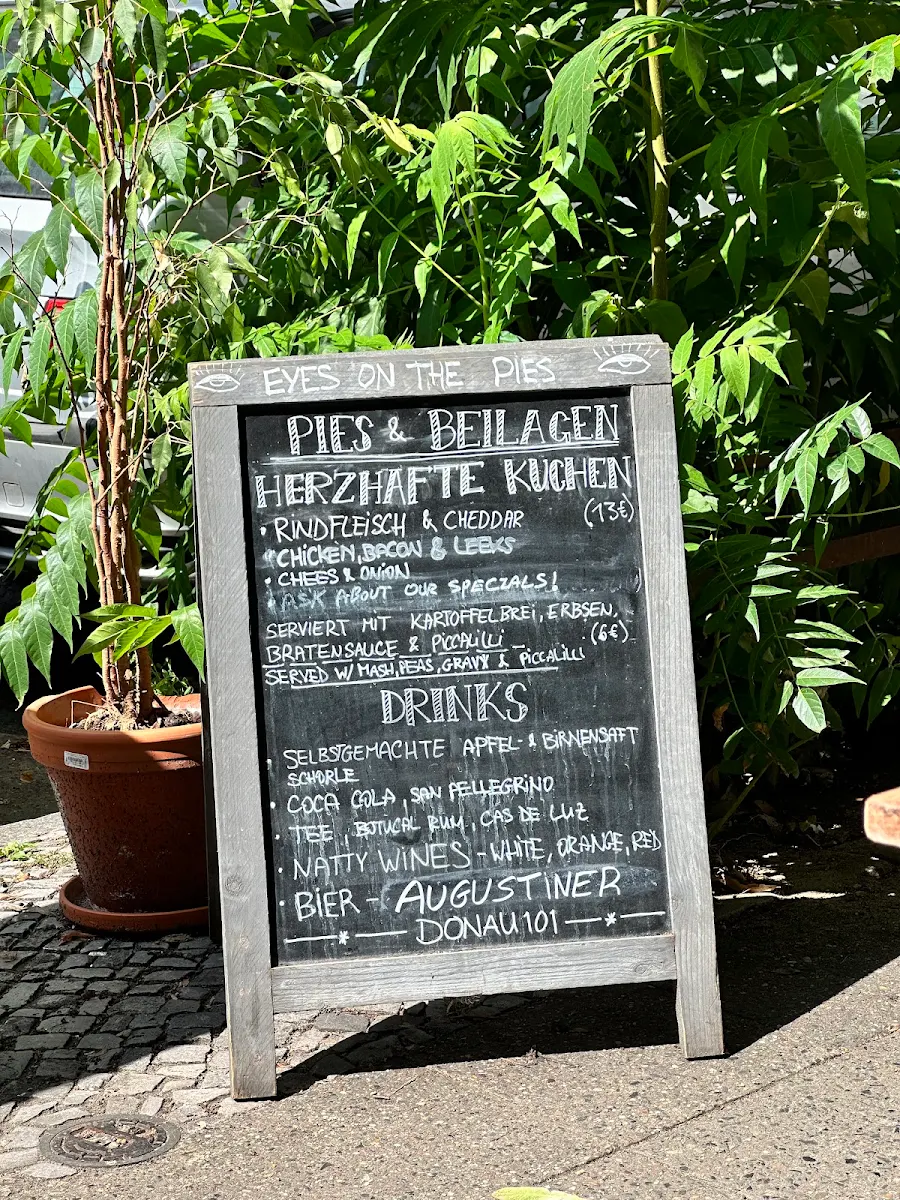 EYES ON THE PIES
PIES & BEILAGEN
HERZHAFTE KUCHEN
• RINDFLEISCH & CHEDDAR (13€)
• CHICKEN, BACON & LEEKS
• CHEES & ONION
• ASK ABOUT OUR SPECIALS!
SERVIERT MIT KARTOFFELBREI, ERBSEN,
BRATENSAUCE & PICCALILLI (6€)
SERVED W/ MASH, PEAS, GRAVY & PICCALILLI
DRINKS
• SELBSTGEMACHTE APFEL- & BIRNENSAFT
SCHORLE
• COCA COLA, SAN PELLEGRINO
• TEE, BOTUCAL RUM, CAS DE LUZ
• NATTY WINES - WHITE, ORANGE, RED
• BIER - AUGUSTINER
DONAU101